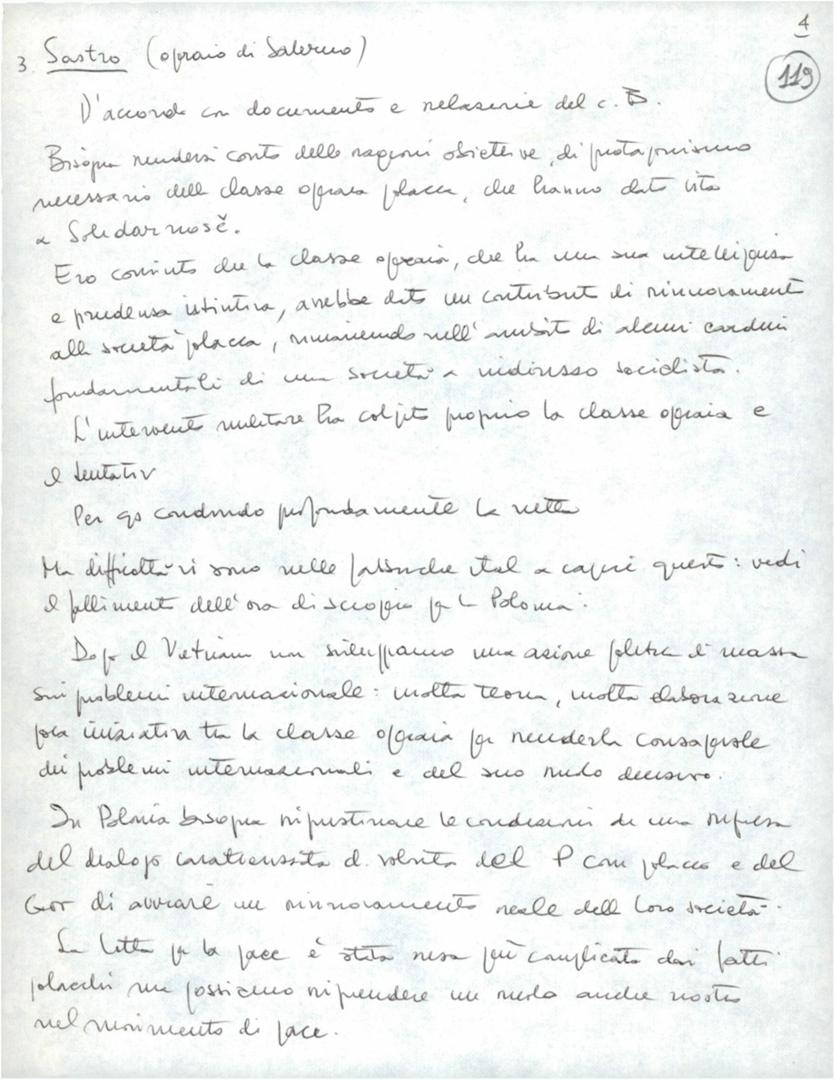 4
119
3. Sastro (operaio di Salerno)
D'accordo con documento e relazione del c. B.
Bisogna rendersi conto delle ragioni obiettive, di protagonismo
necessario della classe operaia polacca, che hanno dato vita
a Solidarnosč.
Ero convinto che la classe operaia, che ha una sua intelligenza
e prudenza istintiva, avrebbe dato un contributo di rinnovamento
alla società polacca, rimanendo nell'ambito di alcuni cardini
fondamentali di una società a indirizzo socialista.
L'intervento militare ha colpito proprio la classe operaia e
il tentativ
Per qs condivido profondamente la
Ma difficoltà vi sono nelle fabbriche ital a capire questo: vedi
il fallimento dell'ora di sciopero per la Polonia.
Dopo il Vietnam non sviluppiamo una azione politica di massa
sui problemi internazionale: molta teoria, molta elaborazione
poca iniziativa tra la classe operaia per renderla consapevole
dei problemi internazionali e del suo ruolo decisivo.
In Polonia bisogna ripristinare le condizioni di una ripresa
del dialogo caratterizzata d. volontà del P com polacco e del
Gov di avviare un rinnovamento reale della loro società.
La lotta per la pace è stata resa più complicata dai fatti
polacchi ma possiamo riprendere un ruolo anche nostro
nel movimento di pace.